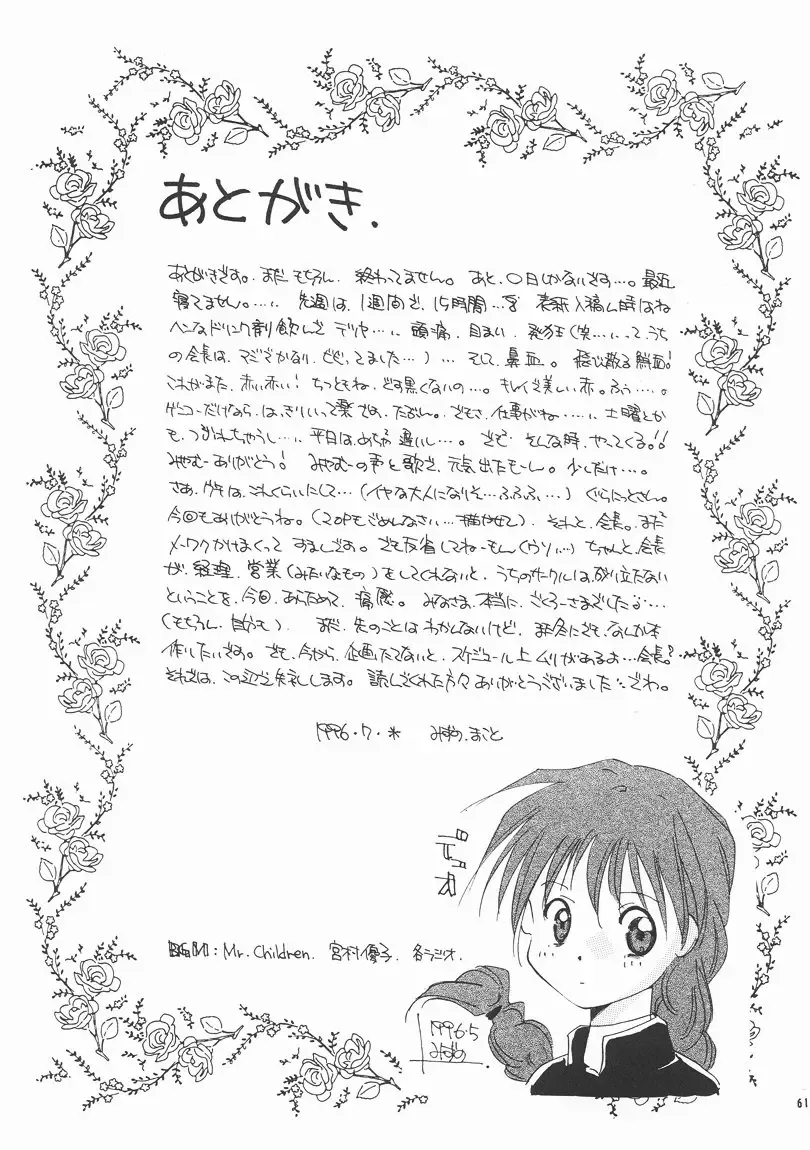 あとがき.
あとがきです。まだもちろん、終わってません。あと、〇日しかないです…。最近
寝てません。…、先週は、1週間で、15時間…。表紙入稿ん時はね
ヘンなドリンク剤飲んで デリヤ…、頭痛、目まい、発狂(笑…、って、うち
の会長は、マジでさかない、とびってました…)…そして、鼻血。飛び散る鮮血!
これがまた、赤い赤い!ちっともね、どす黒くないの…。もしく美しい赤。ふぅ…。
ゲンコーだけなら、は、きりいって楽です、たぶん。でもさ、仕事がね……、土曜とか
も、つぶれちゃうし…、平日は、めちゃ遅いし…。さて、そんな時、やってくる!!
みやむーありがとう! みやむーの声と歌で、元気出たもーん。少しだけ…。
さあ、グチは、これくらいにして…(イヤな大人になりそ…ふふふ…)ぐらにっとさん。
今回もありがとうね。(20Pもごめんなさい…描かせて)、それと、会長。まだ
メーワクかけまくって すまんです。でも反省してねーもん(ウソ…)ちゃんと会長
が、経理、営業(みたいなもの)をしてくれないと、うちのサークルは、成り立たない
ということを、今回、あらためて、痛感。みなさま、本当に、ごくろーさまでした……
(もちろん、自分も)、まだ、先のことはわかんないけど、また冬にでも、なんか本
作りたいです。でも、今から、企画たてないと、スケジュール上ムリがあるよ…会長?
それでは、この辺で失礼します。読んでくれた方々ありがとうございました。でわ。
1996.7.* みずの.まこと
デヘヘ
BGM: Mr. Children. 宮村優子. 各ラジオ.
1996.5
みずの.
61